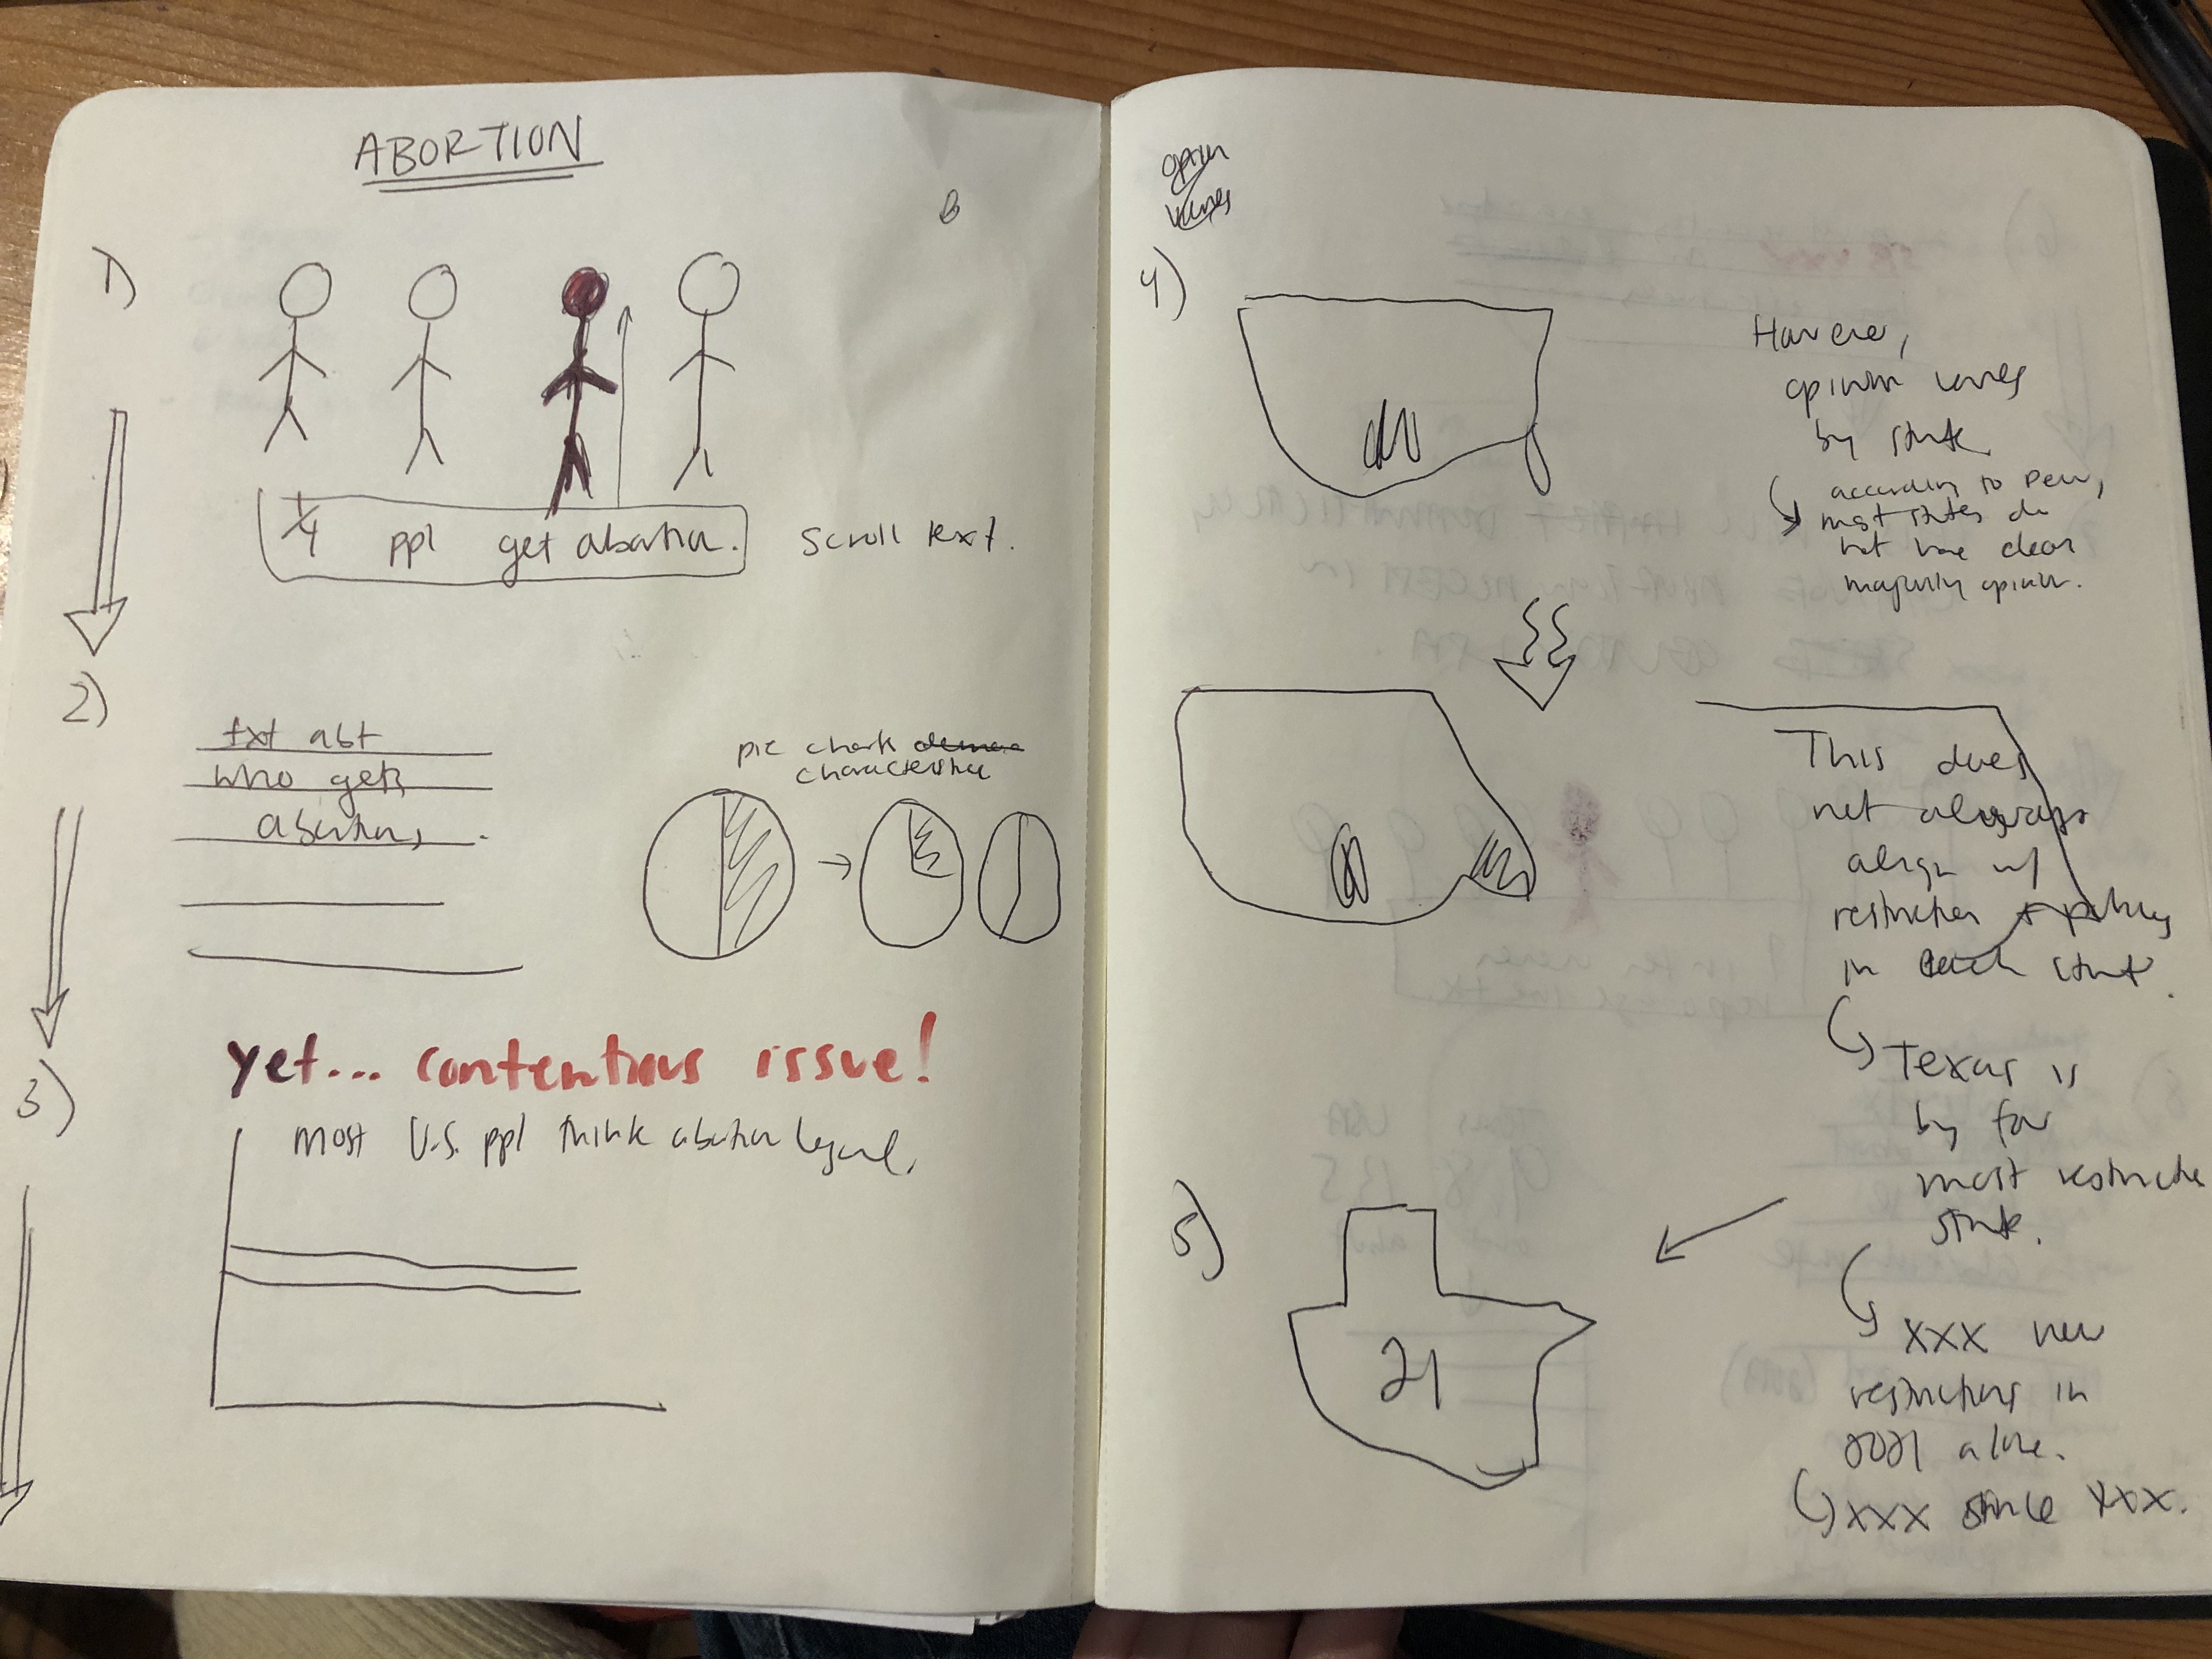 ABORTION
1)
1/4 ppl get abortion.
scroll text.
2)
txt abt
who gets
abortions
pie chart
characteristics
yet... contentious issue!
3)
most U.S. ppl think abortion legal.
opinion
varies
4)
However,
opinion varies
by state
according to Pew,
most states do
not have clear
majority opinion.
This does
not always
align w/
restriction + policy
in each state.
Texas is
by far
most restrictive
state.
5)
21
xxx new
restrictions in
2021 alone.
xxx since xxx.